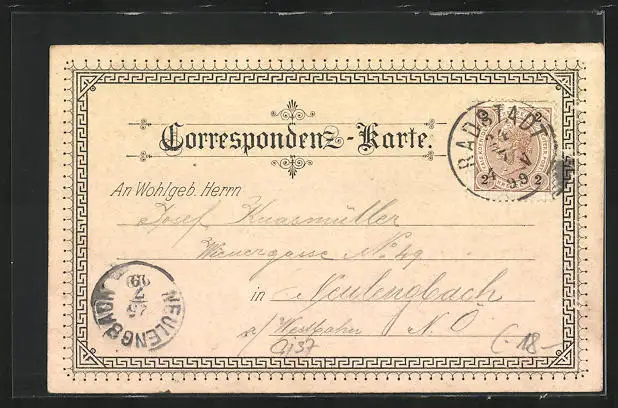 Correspondenz-Karte.
RADSTADT
99
2 2
An Wohlgeb. Herrn
Josef Knasmüller
Wienergasse No 49
in Neulengbach
a/ Westbahn N. Ö
NEULENGBACH
99
18-